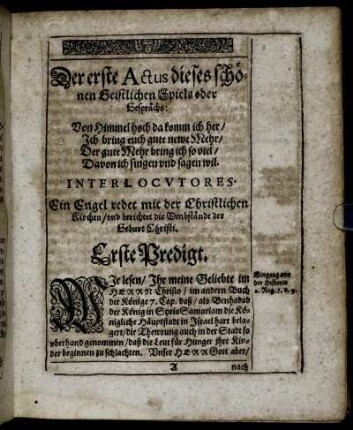 Der erste Actus dieses schö-
nen Geistlichen Spiels oder
Gesprächs:
Von Himmel hoch da komm ich her/
Ich bring euch gute newe Mehr/
Der gute Mehr bring ich so viel/
Davon ich singen vnd sagen wil.
INTERLOCVTORES.
Ein Engel redet mit der Christlichen
Kirchen/ vnd berichtet die Vmbstände der
Geburt Christi.
Erste Predigt.
WIr lesen/ Ihr meine Geliebte im
HERRN Christo/ im andern Buch
der Könige 7. Cap. daß/ als Benhadad
der König in Syria Samariam die Kö-
nigliche Häuptstadt in Israel hart bela-
gert/ die Thewrung auch in der Stadt so
vberhand genommen/ daß die Leut für Hunger ihre Kin-
der beginnen zu schlachten. Vnser HERR Gott aber/
Eingang aus
der Historia
2. Reg. 7. v. 9.
A
nach